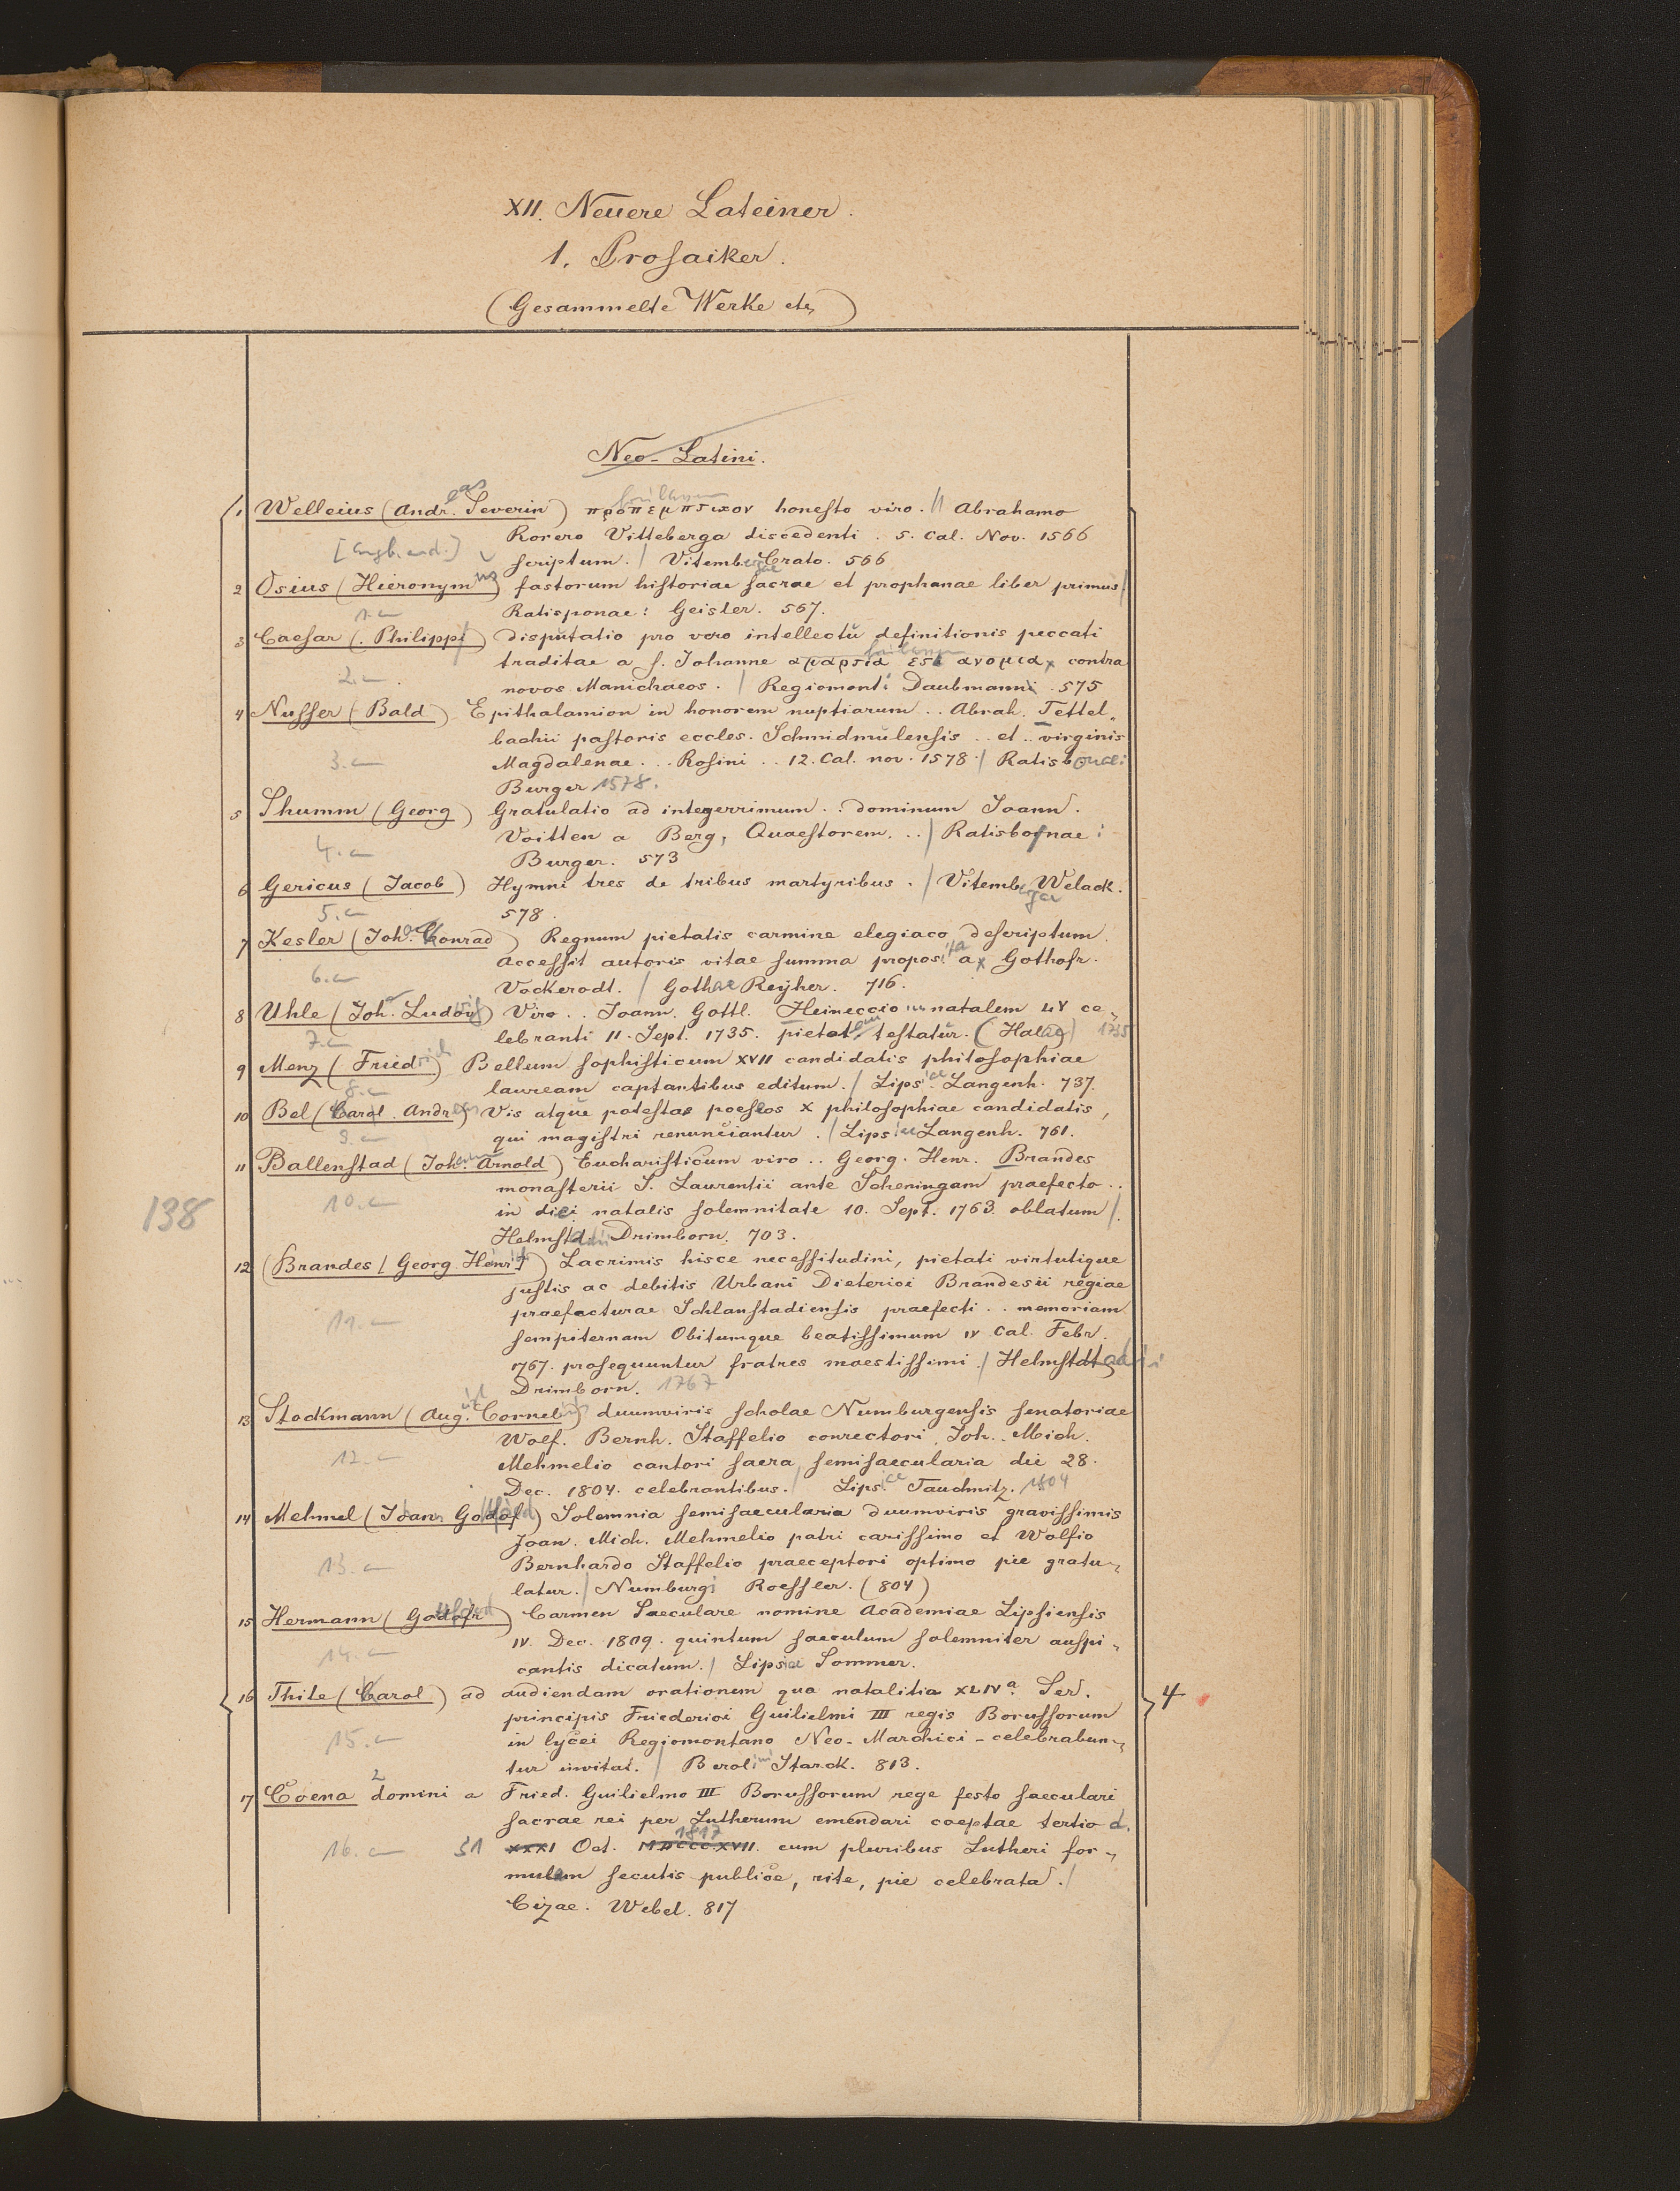 XII. Neuere Lateiner.
1. Prosaiker.
(Gesammelte Werke etc)
Neo-Latini.
1 Welleius (Andreas Severin) προπεμπτικον honesto viro. // Abrahamo
Rorero Vitteberga discedenti. 5. Cal. Nov. 1566
[angeb. and.] scriptum. / Vitembergae Crato. 566
2 Osius (Hieronymus) fastorum historiae sacrae et prophanae liber primus /
1. Ratisponae: Geisler. 567.
3 Caesar (. Philippi) disputatio pro vero intellectu definitionis peccati
traditae a s. Johanne αμαρτια εστ ανομια, contra
2. novos Manichaeos. / Regiomonti Daubmann 575
4 Nusser (Bald) Epithalamion in honorem nuptiarum .. Abrah. Tettel-
bachii pastoris eccles. Schmidmulensis .. et .. virginis
3. Magdalenae ... Rosini .. 12. Cal. nov. 1578 / Ratisbonae:
Burger 1578.
5 Thumm (Georg) Gratulatio ad integerrimum .. dominum Joann.
Voitten a Berg, Quaestorem. .. / Ratisbonae:
4. Burger. 573
6 Gericus (Jacob) Hymni tres de tribus martyribus. / Vitemberga Welack.
5. 578.
7 Kesler (Joh. Konrad) Regnum pietatis carmine elegiaco descriptum.
Accessit autoris vitae summa proposita a Gothofr.
6. Vockerodt. / Gothae Reyher. 716.
8 Uhle (Joh. Ludwig) Viro .. Joann. Gottl. Heineccio natalem LV ce-
7. lebranti 11. Sept. 1735. pietatem testatur. (Halae) 1735
9 Menz (Friedrich) Bellum sophisticum XVII candidatis philosophiae
8. lauream captantibus editum. / Lipsiae Langenh. 737.
10 Bel (Karl. Andreas) Vis atque potestas poeseos X philosophiae candidatis,
9. qui magistri renunciantur. / Lipsiae Langenh. 761.
11 Ballenstad (Johann Arnold) Eucharisticum viro .. Georg. Henr. Brandes
monasterii S. Laurentii ante Scheningam praefecto ..
138 10. in diei natalis solemnitate 10. Sept. 1763. oblatum /.
Helmstadii Drimborn. 703.
12 (Brandes / Georg. Henrich) Lacrimis hisce necessitudini, pietati virtutique
justis ac debitis Urbani Dieterici Brandesii regiae
praefecturae Schlanstadiensis praefecti .. memoriam
11. sempiternam Obitumque beatissimum IV Cal. Febr.
1767. prosequuntur fratres maestissimi. / Helmstadii
Drimborn. 1767
13 Stockmann (Aug. Cornelius) duumviris scholae Numburgensis senatoriae
Wolf. Bernh. Staffelio conrectori, Joh. Mich.
12. Mehmelio cantori sacra semisaecularia die 28.
Dec. 1804. celebrantibus. / Lipsiae Tauchnitz. 1804
14 Mehmel (Johann Gottfried) Solemnia semisaecularia duumviris gravissimis
Joan. Mich. Mehmelio patri carissimo et Wolfio
13. Bernhardo Staffelio praeceptori optimo pie gratu-
latur. / Numburgi Roessler. (804)
15 Hermann (Gottfried) Carmen Saeculare nomine Academiae Lipsiensis
IV. Dec. 1809. quintum saeculum solemniter auspi-
14. cantis dicatum. / Lipsiae Sommer.
16 Thile (Karl) ad audiendam orationem qua natalitia XLIVa. Ser.
principis Friederici Guilielmi III regis Borussorum
15. in lycei Regiomontano Neo-Marchici - celebrabun-
tur invitat. / Berolini Starck. 813.
4
17 Coena domini a Fried. Guilielmo III Borussorum rege festo saeculari
sacrae rei per Lutherum emendari coeptae tertio d.
16. 31 XXXI Oct. MDCCCXVII. 1817 cum pluribus Lutheri for-
mulam secutis publice, rite, pie celebrata. /
Cizae. Webel. 817